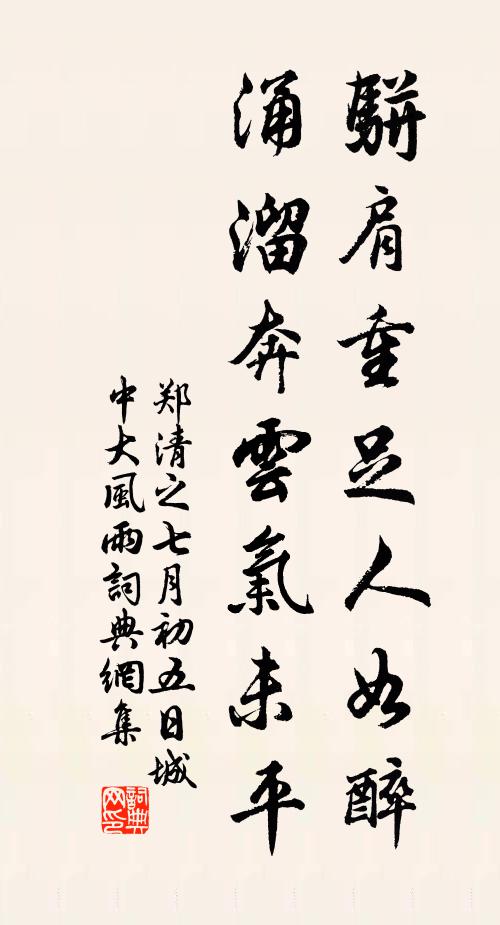 駢肩重足人如醉
涌溜奔雲氣未平
郑清之七月初五日城
中大風雨詞典網集
詞典
网印